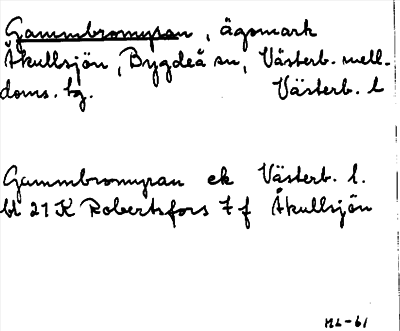 Gammbromyran, ägomark
Åkullsjön, Bygdeå sn, Västerb. mell-
doms. tg. Västerb. l
Gammbromyran ek Västerb. l.
bl 21 K Robertsfors 7 f Åkullsjön
ML-61